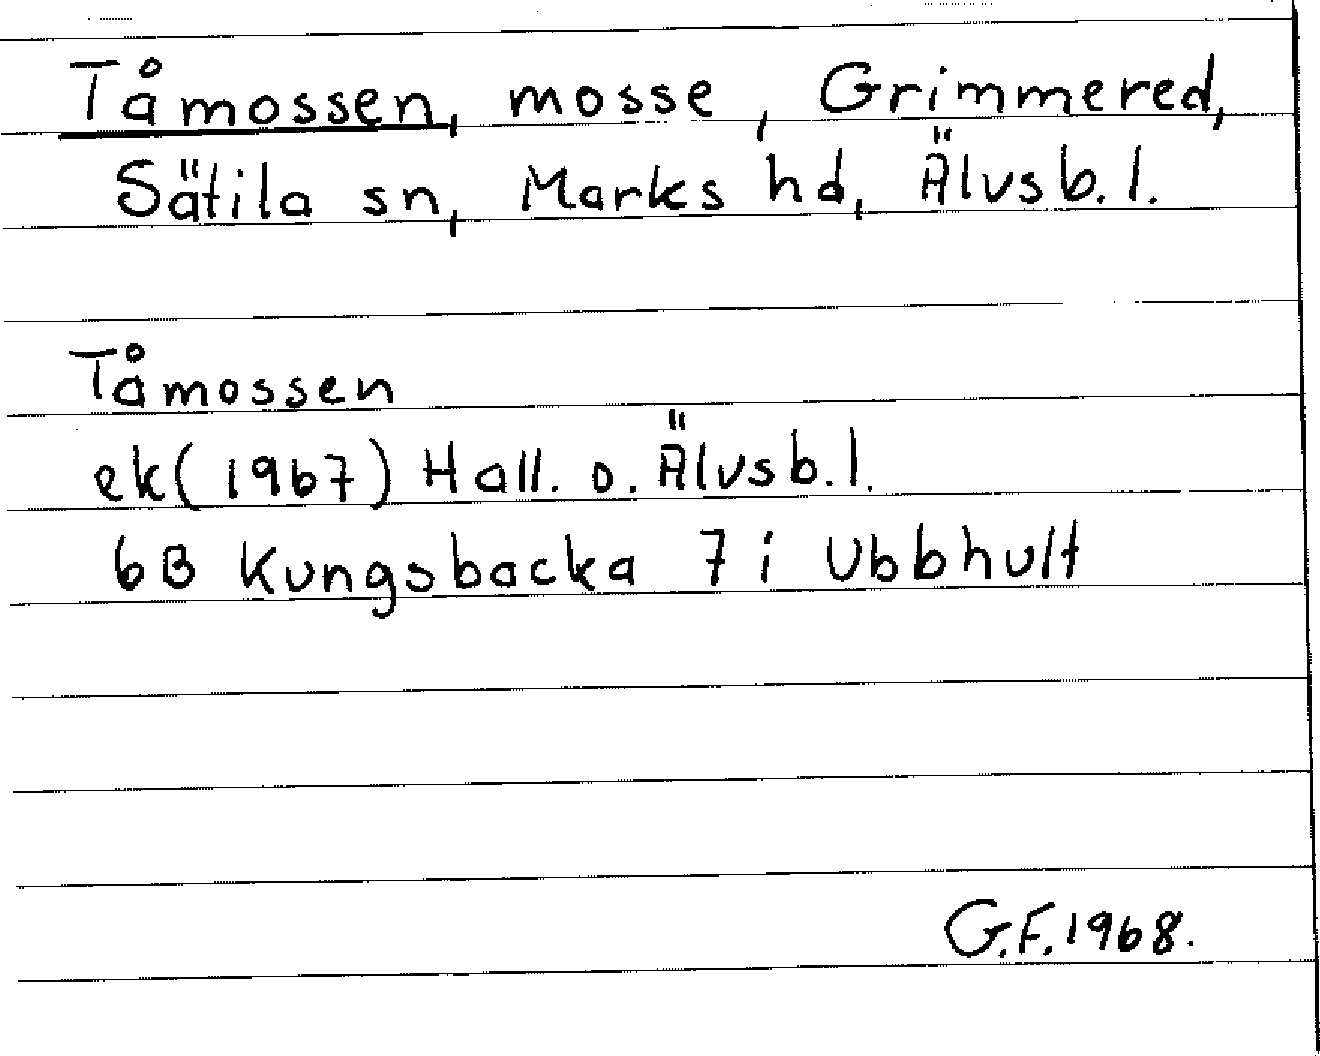 Tåmossen, mosse, Grimmered,
Sätila sn, Marks hd, Älvsb. l.
Tåmossen
ek (1967) Hall. o. Älvsb. l.
6B Kungsbacka 7i Ubbhult
G.F. 1968.